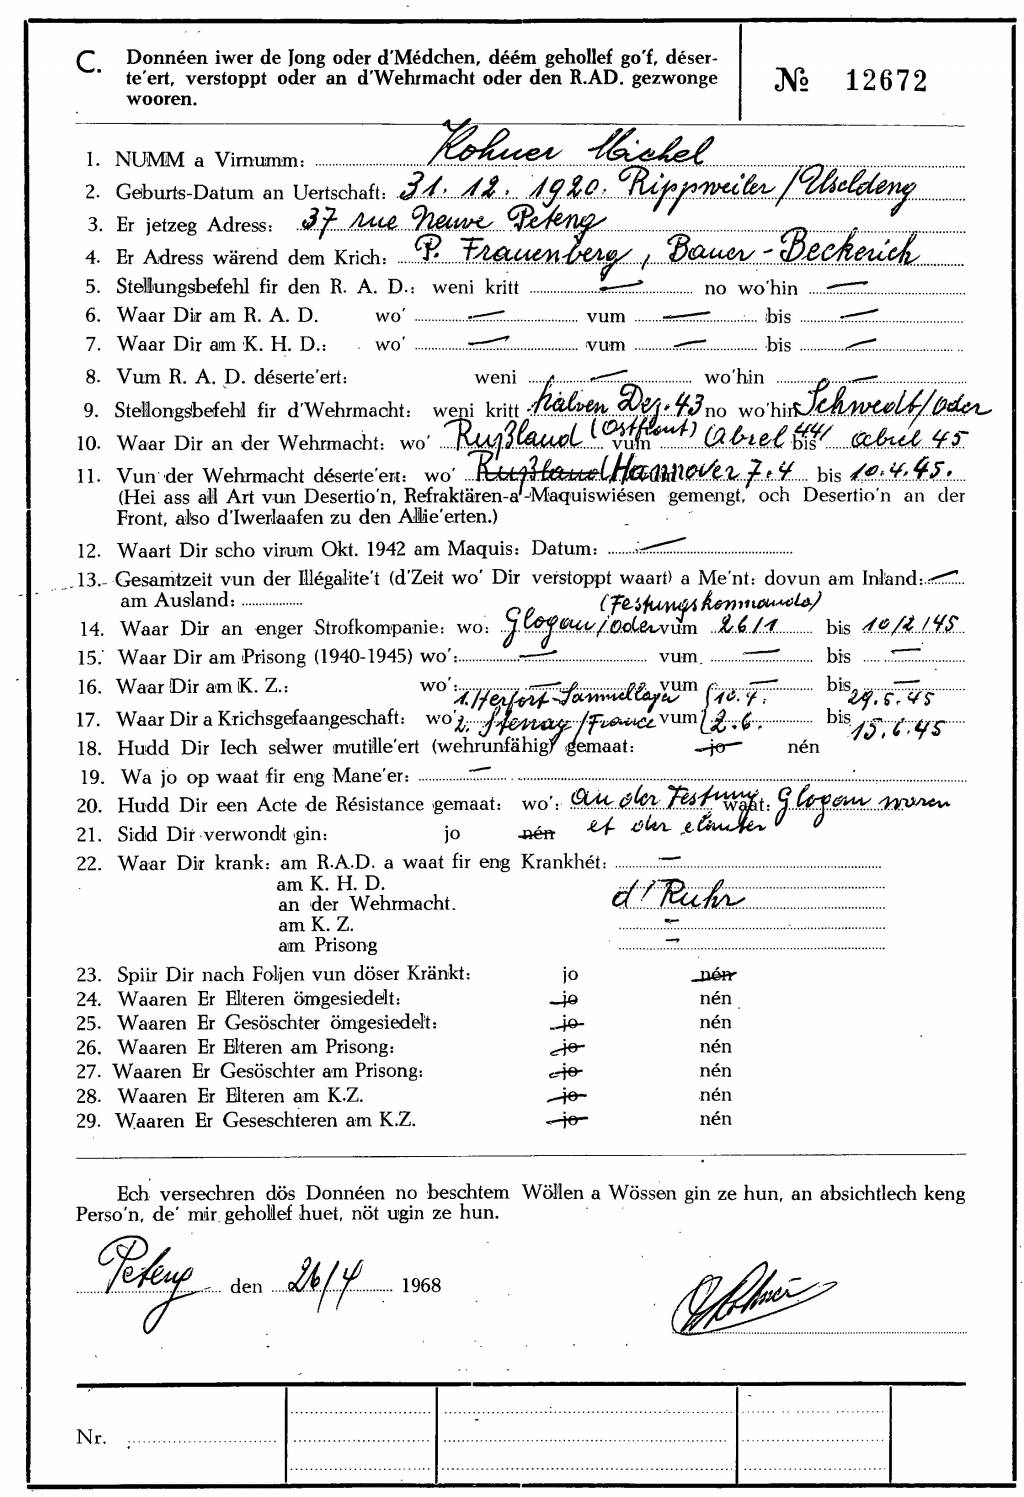 C. Donnéen iwer de Jong oder d'Médchen, déém gehollef go'f, déser-
te'ert, verstoppt oder an d'Wehrmacht oder den R.AD. gezwonge
wooren.
№ 12672
1. NUMM a Virnumm: Kohner Michel
2. Geburts-Datum an Uertschaft: 31. 12. 1920. Rippweiler/Useldeng
3. Er jetzeg Adress: 37 rue Neuve Peteng
4. Er Adress wärend dem Krich: P. Frauenberg, Bauer-Beckerich
5. Stellungsbefehl fir den R. A. D.: weni kritt — no wo'hin —
6. Waar Dir am R. A. D. wo' — vum — bis —
7. Waar Dir am K. H. D.: wo' — vum — bis —
8. Vum R. A. D. déserte'ert: weni — wo'hin —
9. Stellongsbefehl fir d'Wehrmacht: weni kritt halven Dez. 43 no wo'hin Schwedt/Oder
10. Waar Dir an der Wehrmacht: wo' Rußland (Ostfront) vum Abrel 44 bis abrel 45
11. Vun der Wehrmacht déserte'ert: wo' Rußland Hannover 7.4 bis 10.4.45.
(Hei ass all Art vun Desertio'n, Refraktären-a'-Maquiswiésen gemengt, och Desertio'n an der
Front, also d'Iwerlaafen zu den Allie'erten.)
12. Waart Dir scho virum Okt. 1942 am Maquis: Datum: —
13. Gesamtzeit vun der Illégalite't (d'Zeit wo' Dir verstoppt waart) a Me'nt: dovun am Inland: —
am Ausland:
(Festungskommando)
14. Waar Dir an enger Strofkompanie: wo: Glogau/Oder vum 26/1 bis 10/2/45
15. Waar Dir am Prisong (1940-1945) wo': — vum — bis —
16. Waar Dir am K. Z.: wo': — vum — bis —
1. Herfort-Sammellager 10.4. 29.5.45
17. Waar Dir a Krichsgefaangeschaft: wo' 2. Stenay/France vum 2.6. bis 15.6.45
18. Hudd Dir Iech selwer mutille'ert (wehrunfähig) gemaat: jo nén
19. Wa jo op waat fir eng Mane'er: —
20. Hudd Dir een Acte de Résistance gemaat: wo': an der Festung waat: Glogau waren
et der
21. Sidd Dir verwondt gin: jo nén
22. Waar Dir krank: am R.A.D. a waat fir eng Krankhét: —
am K. H. D.
an der Wehrmacht. d'Ruhr
am K. Z. —
am Prisong —
23. Spiir Dir nach Foljen vun döser Kränkt: jo nén
24. Waaren Er Elteren ömgesiedelt: jo nén
25. Waaren Er Gesöschter ömgesiedelt: jo nén
26. Waaren Er Elteren am Prisong: jo nén
27. Waaren Er Gesöschter am Prisong: jo nén
28. Waaren Er Elteren am K.Z. jo nén
29. Waaren Er Geseschteren am K.Z. jo nén
Ech versechren dös Donnéen no beschtem Wöllen a Wössen gin ze hun, an absichtlech keng
Perso'n, de' mir gehollef huet, nöt ugin ze hun.
Peteng den 26/4 1968
Kohner
Nr.